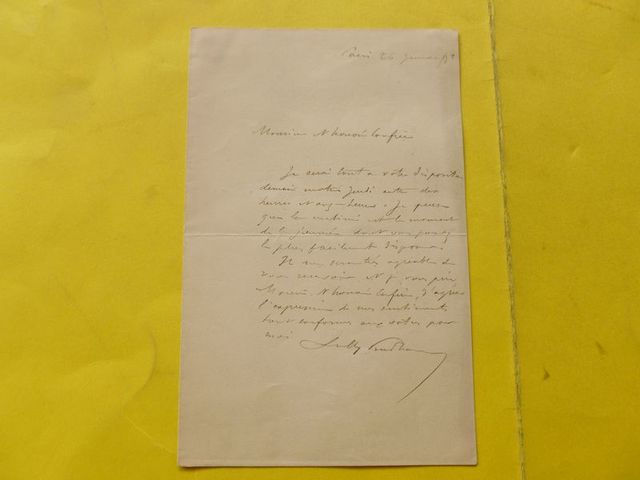 Paris 26 janvier
Monsieur et honoré confrère
Je serai tout à votre disposition
demain matin jeudi entre dix
heures et onze heures. Je pense
que la matinée est le moment
de la journée dont vous pouvez
le plus facilement disposer.
Il me sera très agréable de
vous recevoir et je vous prie
Monsieur et honoré confrère, d'agréer
l'expression de mes sentiments
tout conformes aux vôtres pour
moi
Sully Prudhomme